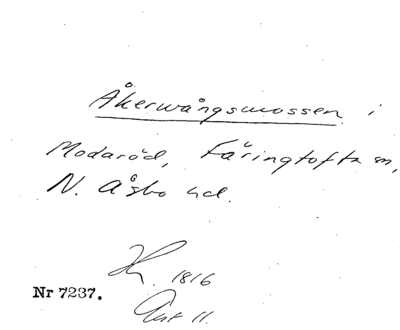 Åkerwångsmossen i
Modaröd, Färingtofta sn,
N. Åsbo hd.
1816
Nr 7237.
11.